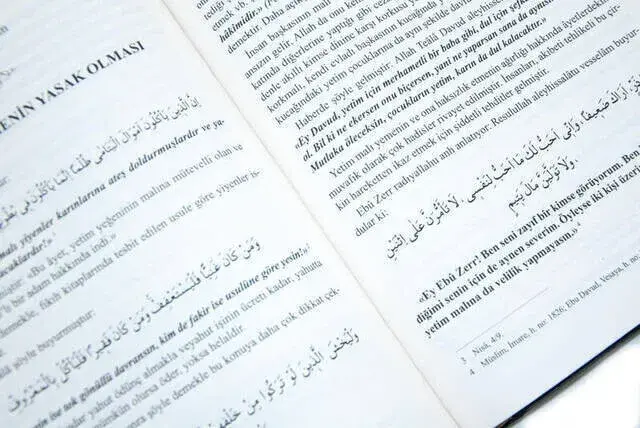 ENİN YASAK OLMASI
إِنَّ الَّذِينَ يَأْكُلُونَ أَمْوَالَ الْيَتَامَى ظُلْمًا إِنَّمَا يَأْكُلُونَ فِي
yiyenler karınlarına ateş doldurmuşlardır ve ya-
caklardır!»
«Bu âyet, yetim yeğeninin malına mütevelli olan ve
u bir adam hakkında indi.»
demekle, fıkıh kitaplarında tesbit edilen usule göre yiyenler is-
şöyle buyurmuştur:
وَمَنْ كَانَ غَنِيًّا فَلْيَسْتَعْفِفْ وَمَنْ كَانَ فَقِيرًا فَلْيَأْكُلْ بِالْمَعْرُوفِ
ise tok gönüllü davransın, kim de fakir ise usulüne göre yesin!»
kadar yahut ödünç almakla yeyahut işinin ücreti kadar, yahutta
mümkün olursa öder, yoksa helaldir.
sonra şöyle demekle bu konuya daha çok dikkat çek-
وَلْيَخْشَ الَّذِينَ لَوْ تَرَكُوا مِنْ خَلْفِهِمْ
etmek vb.
hâkimidir»
demektir. Daha açı
İnsan başkasının mal
ansızın gelir. Allah da onu ken
katında diğerlerine yaptığı gibi ceza
denle akıllı kimse dilsine karşı korkusu y
korkmalı, kendi evladı başkasının kucağında y
kucağındaki yetim çocuklarına da aynı şekilde davr
Haberde şöyle gelmiştir: Allah Teâlâ Davud aleyhissela
«Ey Davud, yetim için merhametli bir baba gibi, dul için şefk
ol. Bil ki ne ekersen onu biçersen, yani ne yaparsan sana da aynıs
Mutlaka öleceksin, çocukların yetim, karın da dul kalacaktır.»
Yetim malı yemenin ve ona haksızlık etmenin ağırlığı hakkında âyetlerdeki
muvafık olarak çok hadisler rivayet edilmiştir. İnsanları, akıbeti tehlikeli bu çir-
kin hareketten ikaz etmek için şiddetli tehditler gelmiştir.
Ebû Zerr radıyallahu anh anlatıyor: Resulullah aleyhissalâtu vesselâm buyur-
dular ki:
أَرَاكَ ضَعِيفًا، وَإِنِّي أُحِبُّ لَكَ مَا أُحِبُّ لِنَفْسِي. لَا تَأَمَّرَنَّ عَلَى اثْنَيْنِ
وَلَا تَوَلَّيَنَّ مَالَ يَتِيمٍ
«Ey Ebû Zerr! Ben seni zayıf bir kimse görüyorum. Ben
diğimi senin için de aynen severim. Öyleyse iki kişi üzeri
yetim malına da velilik yapmayasın.»
3 Nisâ, 4/9.
4 Müslim, İmare, h. no: 1826; Ebu Davud, Vesaya, h. no: